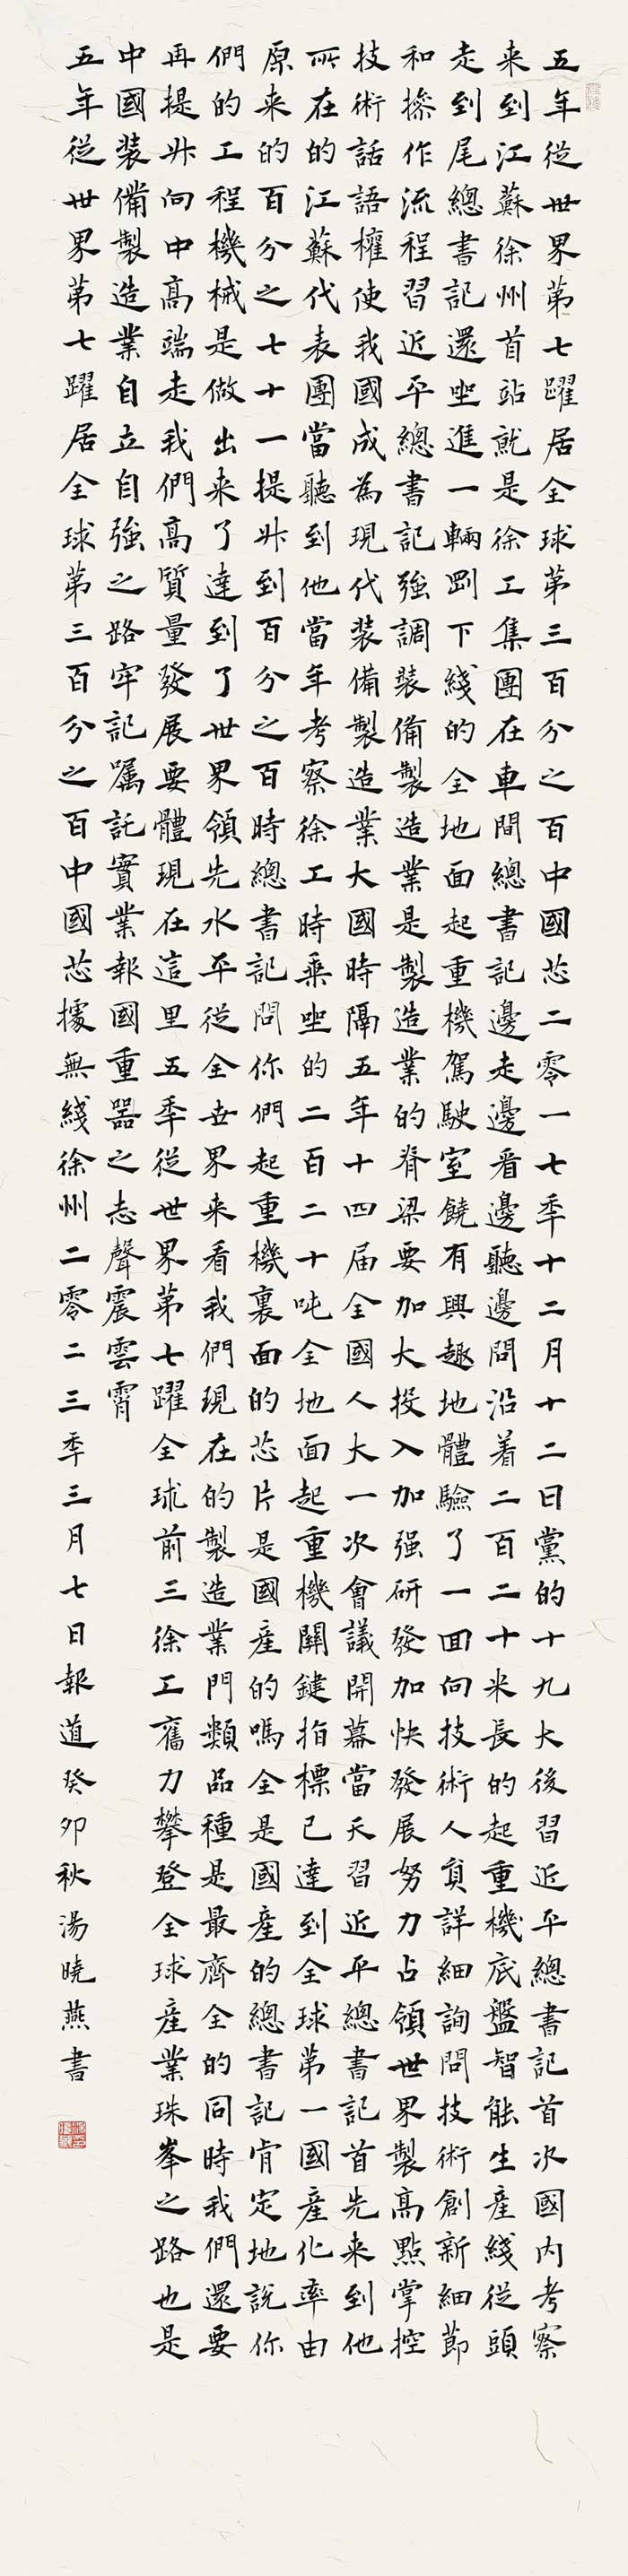 五年從世界第七躍居全球第三百分之百中國芯二零一七季十二月十二日黨的十九大後習近平總書記首次國内考察
来到江蘇徐州首站就是徐工集團在車間總書記邊走邊看邊聽邊問沿着二百二十米長的起重機底盤智能生産綫從頭
走到尾總書記還坐進一輛剛下綫的全地面起重機駕駛室饒有興趣地體驗了一回向技術人員詳細詢問技術創新細節
和操作流程習近平總書記強調裝備製造業是製造業的脊梁要加大投入加强研發加快發展努力占領世界製高點掌控
技術話語權使我國成為現代裝備製造業大國時隔五年十四届全國人大一次會議開幕當天習近平總書記首先来到他
所在的江蘇代表團當聽到他當年考察徐工時乘坐的二百二十吨全地面起重機關鍵指標已達到全球第一國産化率由
原来的百分之七十一提升到百分之百時總書記問你們起重機裏面的芯片是國産的嗎全是國産的總書記肯定地說你
們的工程機械是做出来了達到了世界領先水平從全世界来看我們現在的製造業門類品種是最齊全的同時我們還要
再提升向中高端走我們高質量發展要體現在這里五季從世界第七躍全球前三徐工奮力攀登全球産業珠峯之路也是
中國裝備製造業自立自強之路牢記嘱託實業報國重器之志聲震雲霄
五年從世界第七躍居全球第三百分之百中國芯據無綫徐州二零二三季三月七日報道癸卯秋湯曉燕書